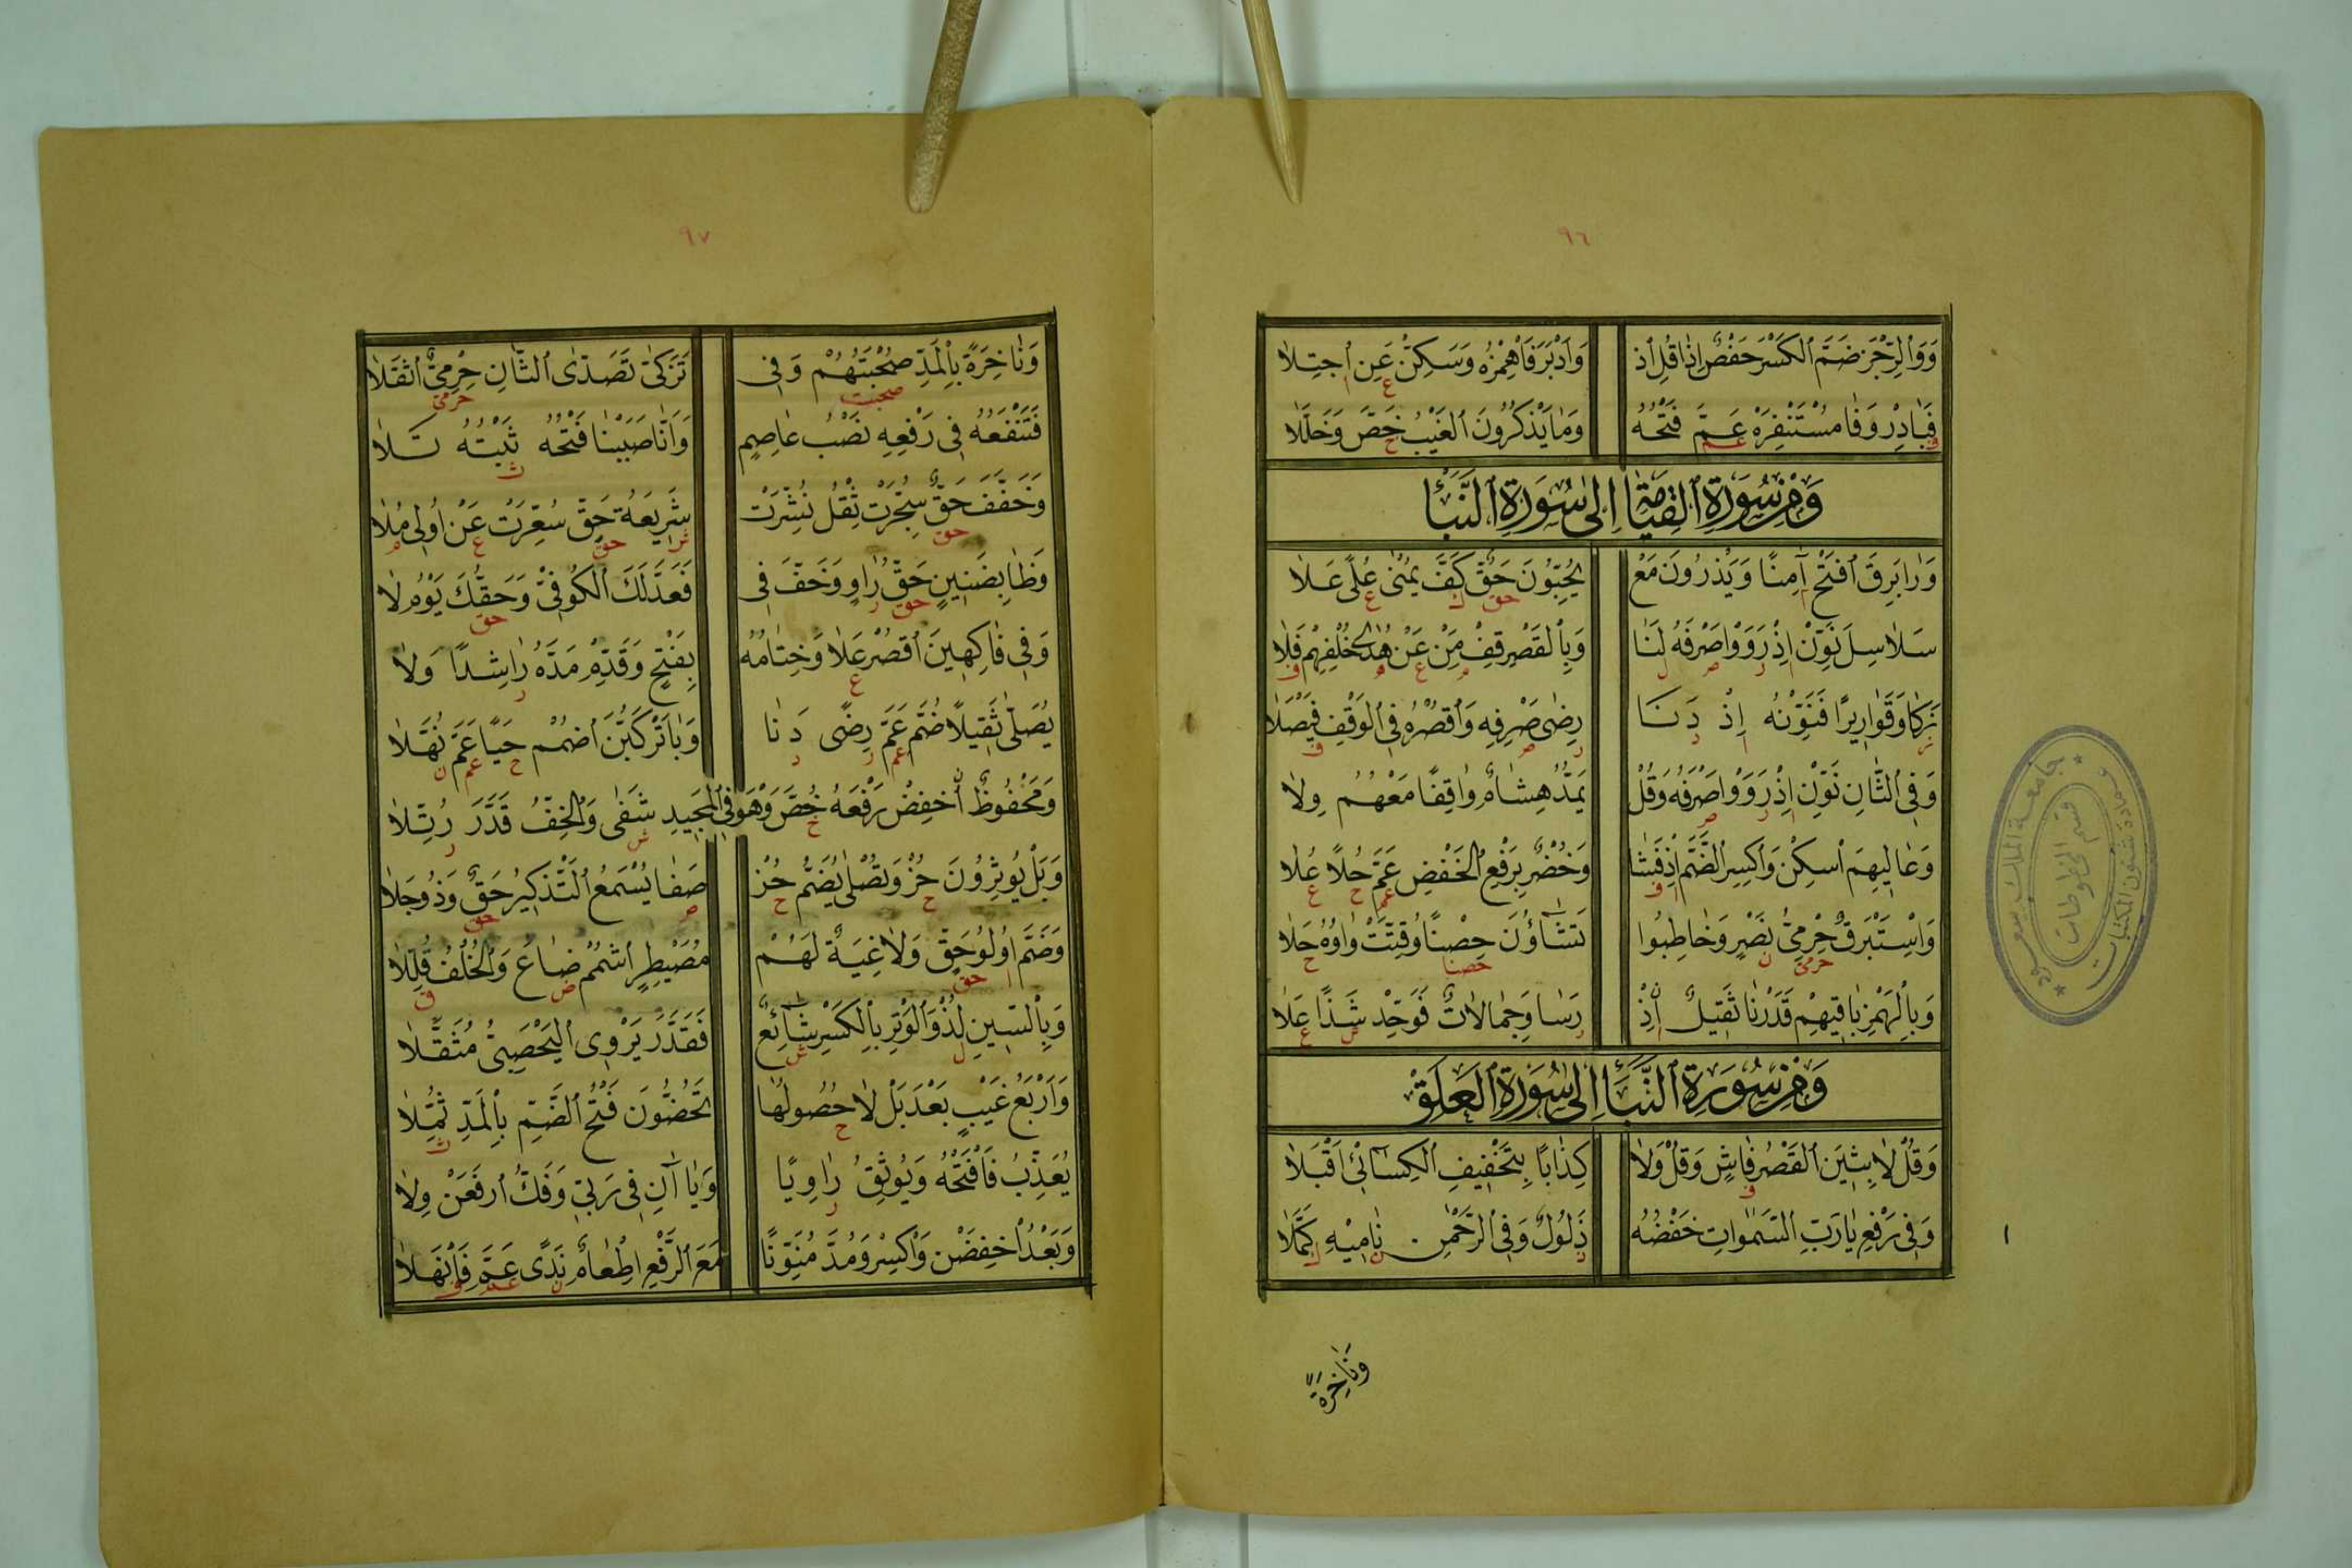 ٩٦
وَوَالرِّجْزَ ضَمَّ الكَسْرَ حَفْصٌ إِذَا قُلِ اذْ وَأَدْبَرَ فَاهْمِزْهُ وَسَكِّنْ عَنِ اجتِلَا
فَبَادِرْ وَفَا مُسْتَنْفِرَهْ عَمَّ فَتْحُهُ وَمَا يَذْكُرُونَ الغَيْبُ خُصَّ وَخُلِّلَا
وَمِنْ سُورَةِ القِيَامَةِ إِلَى سُورَةِ النَّبَأْ
وَرَا بَرِقَ افْتَحْ آمِنًا وَيَذَرُونَ مَعْ يُحِبُّونَ حَقٌّ كَفَّ يُمْنَى عُلًى عَلَا
سَلَاسِلَ نَوِّنْ إِذْ رَوَوْا صَرْفَهُ لَنَا وَبِالقَصْرِ قِفْ مِنْ عَنْ هُدًى خُلْفِهِمْ فَلَا
زَكَا وَقَوَارِيرًا فَنَوِّنْهُ إِذْ دَنَا رِضَى صَرْفِهِ وَاقْصُرْهُ فِي الوَقْفِ فَيْصَلَا
وَفِي الثَّانِ نَوِّنْ إِذْ رَوَوْا صَرْفَهُ وَقُلْ يَمُدُّ هِشَامٌ وَاقِفًا مَعْهُمُ وِلَا
وَعَالِيهِمُ اسْكِنْ وَاكْسِرِ الضَّمَّ إِذْ فَشَا وَخُضْرٌ بِرَفْعِ الخَفْضِ عَمَّ حُلًا عُلَا
وَاسْتَبْرَقٌ حِرْمِيُّ نَصْرٍ وَخَاطَبُوا تَشَاؤُنَ حِصْنًا وُقِّتَتْ وَاوُهُ حَلَا
وَبِالهَمْزِ بَاقِيهِمْ قَدَرْنَا ثَقِيلٌ إِذْ رَسَا وَجِمَالَاتٌ فَوَحِّدْ شَذًا عَلَا
وَمِنْ سُورَةِ النَّبَإِ إِلَى سُورَةِ العَلَقْ
وَقُلْ لَابِثِينَ القَصْرُ فَاشٍ وَقُلْ وَلَا كِذَابًا بِتَخْفِيفِ الكِسَائِيِّ أَقْبَلَا
وَفِي رَفْعِ يَا رَبُّ السَّمَوَاتِ خَفْضُهُ ذَلُولٌ وَفِي الرَّحْمٰنِ نَامِيهِ كَمَّلَا
وَنَاخِرَةً
جامعة الملك سعود
قسم المخطوطات
عمادة شئون المكتبات
١
٩٧
وَنَاخِرَةً بِالمَدِّ صُحْبَتُهُمْ وَفِي تَزَكَّى تَصَدَّى الثَّانِ حِرْمِيٌّ اثْقَلَا
فَتَنْفَعُهُ فِي رَفْعِهِ نَصْبُ عَاصِمٍ وَأَنَّا صَبَبْنَا فَتْحُهُ ثَبْتُهُ تَلَا
وَخَفَّفَ حَقٌّ سُجِّرَتْ ثِقْلُ نُشِّرَتْ شَرِيعَةُ حَقٍّ سُعِّرَتْ عَنْ أُولِي مُلَا
وَظَا بِضَنِينٍ حَقُّ رَاوٍ وَخَفَّ فِي فَعَدَّلَكَ الكُوفِيُّ وَحَقُّكَ يَوْمُ لَا
وَفِي فَاكِهِينَ اقْصُرْ عُلَا وَخِتَامُهُ بِفَتْحٍ وَقَدِّمْ مَدَّهُ رَاشِدًا وَلَا
يُصَلَّى ثَقِيلًا ضُمَّ عَمَّ رِضًى دَنَا وَبَا تَرْكَبُنَّ اضْمُمْ حَيًا عَمَّ نُهَّلَا
وَمَحْفُوظٌ اخْفِضْ رَفْعَهُ خُصَّ وَهْوَ فِي المَجِيدِ شَفَى وَالخِفُّ قَدَّرَ رُتِّلَا
وَبَلْ يُؤْثِرُونَ حُزْ وَتَصْلَى يُضَمُّ حُزْ صَفَا يُسْمَعُ التَّذْكِيرُ حَقٌّ وَذُو جِلَا
وَضَمَّ أُولُو حَقٍّ وَلَاغِيَةٌ لَهُمْ مُصَيْطِرٍ اشْمِمْ ضَاعَ وَالخُلْفُ قُلِّلَا
وَبِالسِّينِ لُذْ وَالوَتْرِ بِالكَسْرِ شَائِعٌ فَقَدَّرَ يَرْوِي اليَحْصَبِيُّ مُثَقَّلَا
وَأَرْبَعُ غَيْبٍ بَعْدَ بَلْ لَا حُصُولُهَا تَحُضُّونَ فَتْحُ الضَّمِّ بِالمَدِّ ثُمِّلَا
يُعَذِّبُ فَافْتَحْهُ وَيُوثِقُ رَاوِيًا وَيَا آنِ فِي رَبِّي وَفَكُّ ارْفَعَنْ وِلَا
وَبَعْدُ اخْفِضَنْ وَاكْسِرْ وَمُدَّ مُنَوِّنًا مَعَ الرَّفْعِ إِطْعَامٌ نَدًى عَمَّ فَانْهَلَا